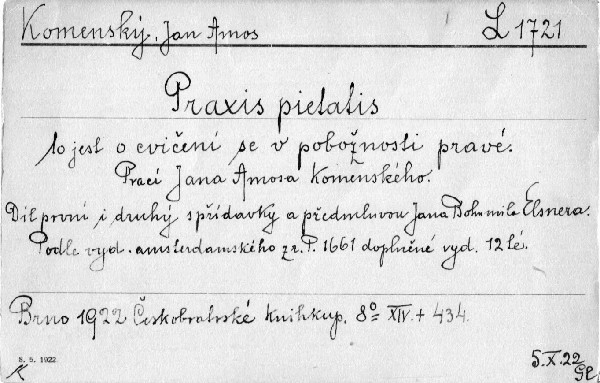 Komenský, Jan Amos L 1721
Praxis pietatis
to jest o cvičení se v pobožnosti pravé.
Prací Jana Amosa Komenského.
Díl první i druhý s přídavky a předmluvou Jana Bohumila Elsnera.
Podle vyd. amsterdamského z r. P. 1661 doplněné vyd. 12té.
Brno 1922 Českobratrské knihkup. 8º XIV. + 434.
8. 5. 1922. 5.X.22
K